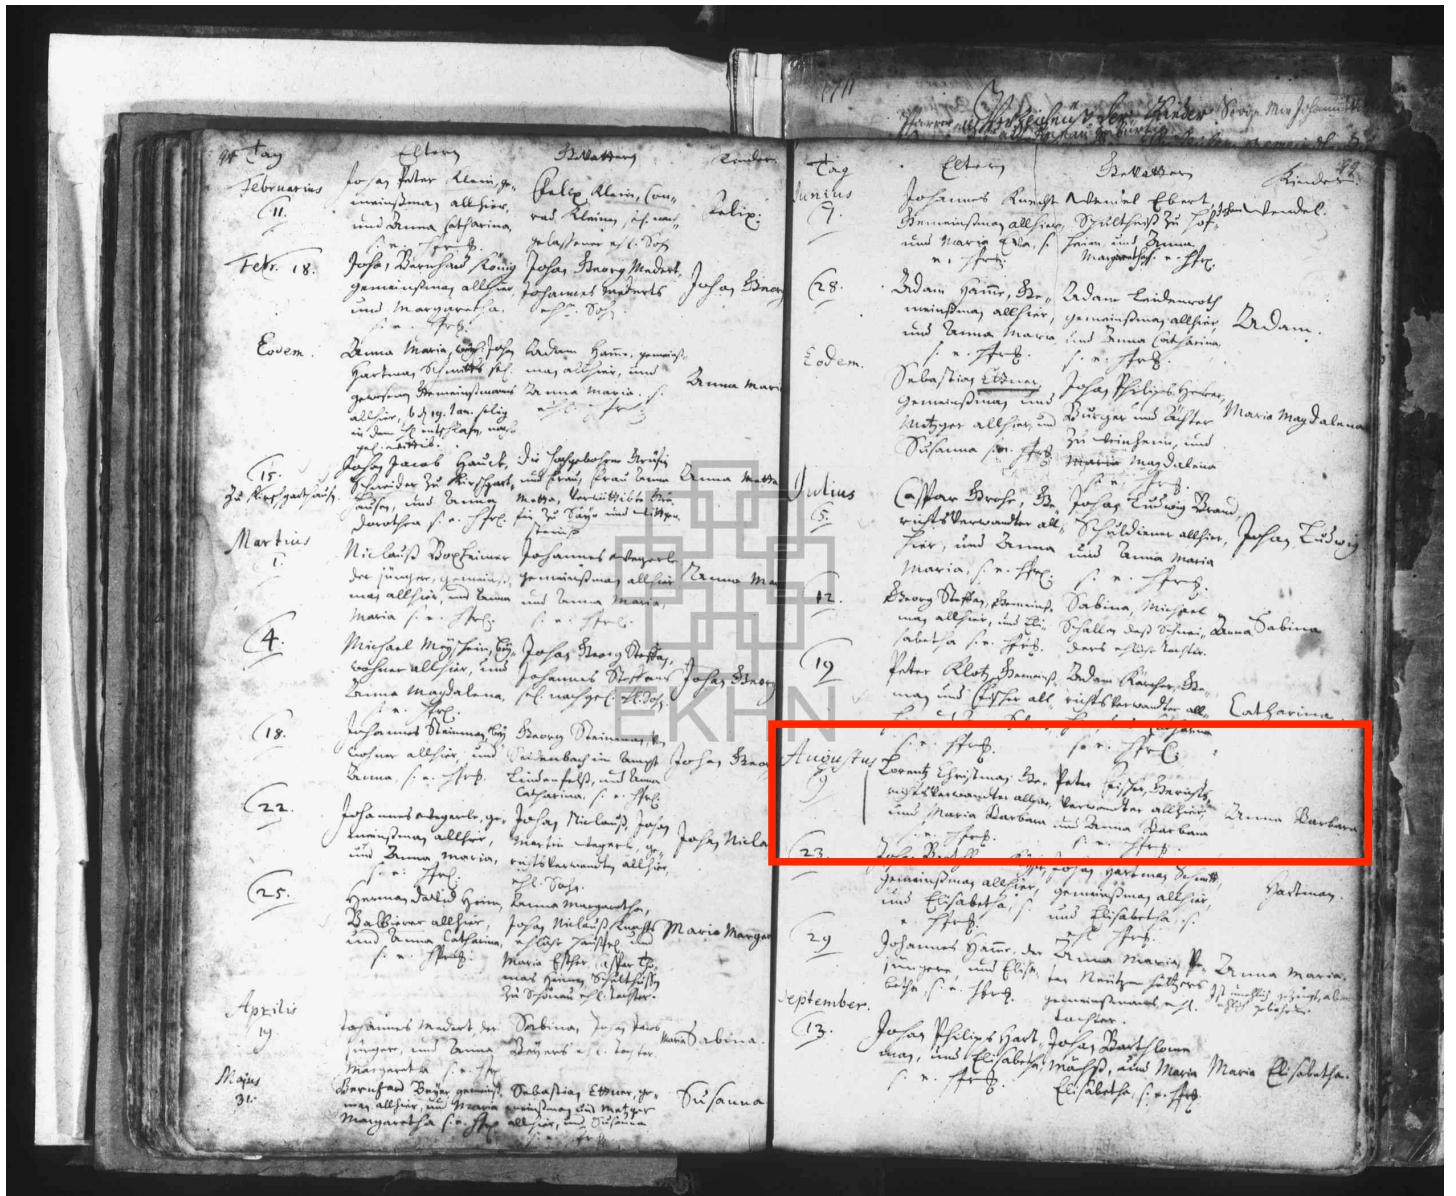 1711
94 Tag Eltern Gevattern Kinder
Februarius
11.
Johan Peter Klein, ge-
meinßman allhier,
und Anna Catharina,
s. e. hfr.
Felix Klein, Con-
rad Kleinen, sel. nach-
gelassener ehl. Sohn
Felix.
Febr. 18.
Johan Bernhard König
gemeinßman allhier
und Margaretha,
s. e. hfr.
Johan Georg Medert,
Johannes Mederts
ehl. Sohn
Johan Georg
Eodem.
Anna Maria, Johan
Hartman Schmitts sel.
gewesenen Gemeinßmans
allhier,
Adam Hamm, gemeinß-
man allhier, und
Anna Maria. s.
ehl. hfr.
Anna Maria
15.
Johan Jacob Hauck,
Schneider zu
und Anna
Dorothea s. e. hfr.
die hochgebohrne Gräfin
und Frau, Frau Anna
Metta, verwittibte Grä-
fin zu Sayn und Wittgen-
stein
Anna Metta
Martius
1.
Niclauß Boxheimer
der jünger, gemeinß-
man allhier, und Anna
Maria s. e. hfr.
Johannes Wegerle
gemeinßman allhier
und Anna Maria,
s. e. hfr.
Anna Ma
4.
Michael
wohner allhier, und
Anna Magdalena,
s. e. hfr.
Johan Georg Steffan,
Johannes Steffans
sel. nachgel. ehl. Sohn.
Johan Georg
18.
Johannes Steinman, bey-
wohner allhier, und
Anna, s. e. hfr.
Georg Steinman, von
Seidenbach im Ampt
Lindenfelß, und Anna
Catharina, s. e. hfr.
Johan Georg
22.
Johannes Wegerle, ge-
meinßman allhier,
und Anna Maria,
s. e. hfr.
Johan Niclauß, Johan
Martin Wegerls, ge-
richtsverwandten allhier,
ehl. Sohn.
Johan Nicla
25.
Herman David Heim,
Balbierer allhier,
und Anna Catharina,
s. e. hfr.
Anna Margaretha,
Johan Niclauß Knechts
ehliche Haußfr. und
Maria Esther, Caspar Tho-
mas Heimen, Schultheißen
zu Schönau ehl. Tochter.
Maria Marga
Aprilis
19.
Johannes Medert der
jünger, und Anna
Margaretha s. e. hfr.
Sabina, Johan Jacob
Beyers ehl. Tochter.
Maria Sabina.
Majus
31.
Bernhard Beyer gemeinß-
man allhier, und Maria
Margaretha s. e. hfr.
Sebastian Ettner, ge-
meinßman und Metzger
allhier, und Susanna
s. e. hfr.
Susanna
Tag Eltern Gevattern Kinder.
Junius
7.
Johannes Knecht
Gemeinßman allhier,
und Maria Eva, s.
e. hfr.
Wendel Ebert,
Schultheiß zu Hof-
heim, und Anna
Margaretha s. e. hfr.
Wendel.
28.
Adam Hamm, Ge-
meinßman allhier,
und Anna Maria
s. e. hfr.
Adam Leidenroth
gemeinßman allhier,
und Anna Catharina
s. e. hfr.
Adam.
Eodem.
Sebastian Ettner,
Gemeinßman und
Metzger allhier, und
Susanna s. e. hfr.
Johan Philips
Burger und
zu Weinheim, und
Maria Magdalena
s. e. hfr.
Maria Magdalena
Julius
5.
Caspar Grohe, Ge-
richtsverwandter all-
hier, und Anna
Maria, s. e. hfr.
Johan Ludwig Brand,
Schuldiener allhier,
und Anna Maria
s. e. hfr.
Johan Ludwig
12.
Georg Steffan, Gemeinß-
man allhier, und Eli-
sabetha s. e. hfr.
Sabina, Michael
Schaller deß Schnei-
ders ehliche Tochter.
Anna Sabina
19
Peter Klotz, Gemeinß-
man und Fischer all-
s. e. hfr.
Adam Kärcher, Ge-
richtsverwandter all-
s. e. hfr.
Catharina.
Augustus
9
Lorentz Christman, Ge-
richtsverwandter allhier,
und Maria Barbara
s. e. hfr.
Peter Fischer, Gerichts-
verwandter allhier,
und Anna Barbara
s. e. hfr.
Anna Barbara
23.
Johan
gemeinßman allhier,
und Elisabetha, s.
e. hfr.
Johan Hartman Schmitt,
gemeinßman allhier,
und Elisabetha, s.
ehl. hfr.
Hartman.
29
Johannes Hamm, der
jüngere, und Elisa-
betha, s. e. hfr.
Anna Maria, Pe-
ter
gemeinßmans ehl.
Tochter.
Anna Maria,
September.
13.
Johan Philips Hart-
man, und Elisabetha,
s. e. hfr.
Johan Bartholome
und Maria
Elisabetha, s. e. hfr.
Maria Elisabetha.
EKHN